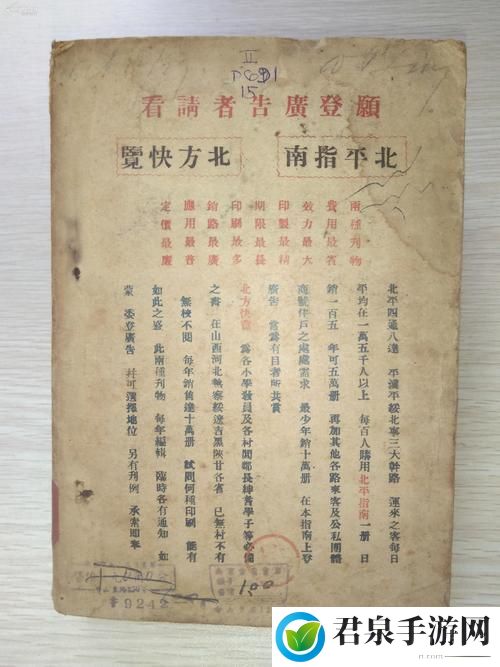 II
15
願登廣告者請看
北平指南
北方快覽
兩種刊物
費用最省
效力最大
印製最精
期限最長
印刷最多
銷路最廣
應用最普
定價最廉
北平四通八達 平漢平綏北寧三大幹路 運來之客每日
平均在一萬五千人以上 每百人購用北平指南一冊 日
銷一百五 年可五萬冊 再加其他各路來客及公私團體
商號住戶之處處需求 最少年銷十萬冊 在本指南上登
廣告 當為有目者所共賞
北方快覽 為各小學教員及各村閭鄰長紳耆學子等必備
之書 在山西河北熱察綏遼吉黑陝甘各省 已無村不有
無校不閱 每年銷售達十萬冊 試問何種印刷 能有
如此之盛 此兩種刊物 每年編輯 臨時各有通知 如
蒙 委登廣告 幷可選擇地位 另有刊例 承索即奉
9242
1.00
君泉手游网